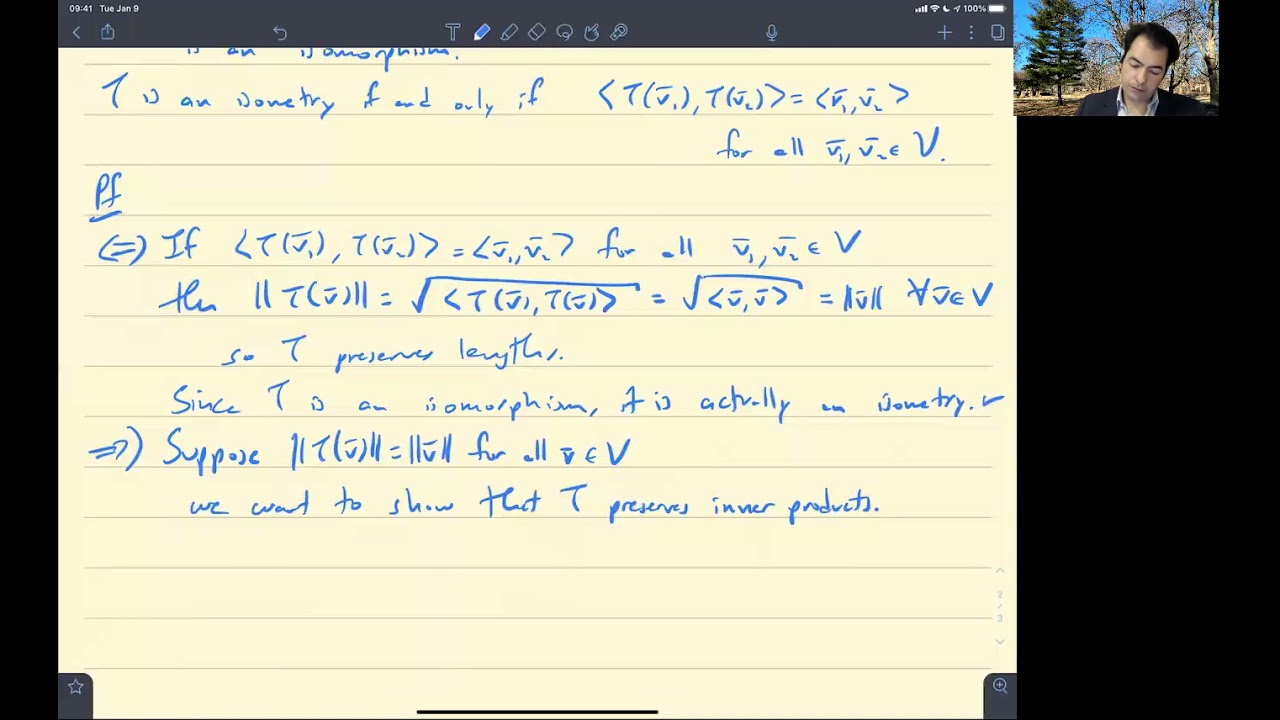 09:41 Tue Jan 9
100%
is an isomorphism.
T is an isometry if and only if <T(v̄₁), T(v̄₂)> = <v̄₁, v̄₂>
for all v̄₁, v̄₂ ∈ V.
Pf
(⇐) If <T(v̄₁), T(v̄₂)> = <v̄₁, v̄₂> for all v̄₁, v̄₂ ∈ V
then ||T(v̄)|| = √<T(v̄), T(v̄)> = √<v̄, v̄> = ||v̄|| ∀v̄∈V
so T preserves lengths.
Since T is an isomorphism, it is actually an isometry. ✓
⇒) Suppose ||T(v̄)|| = ||v̄|| for all v̄ ∈ V
we want to show that T preserves inner products.
2
/
3